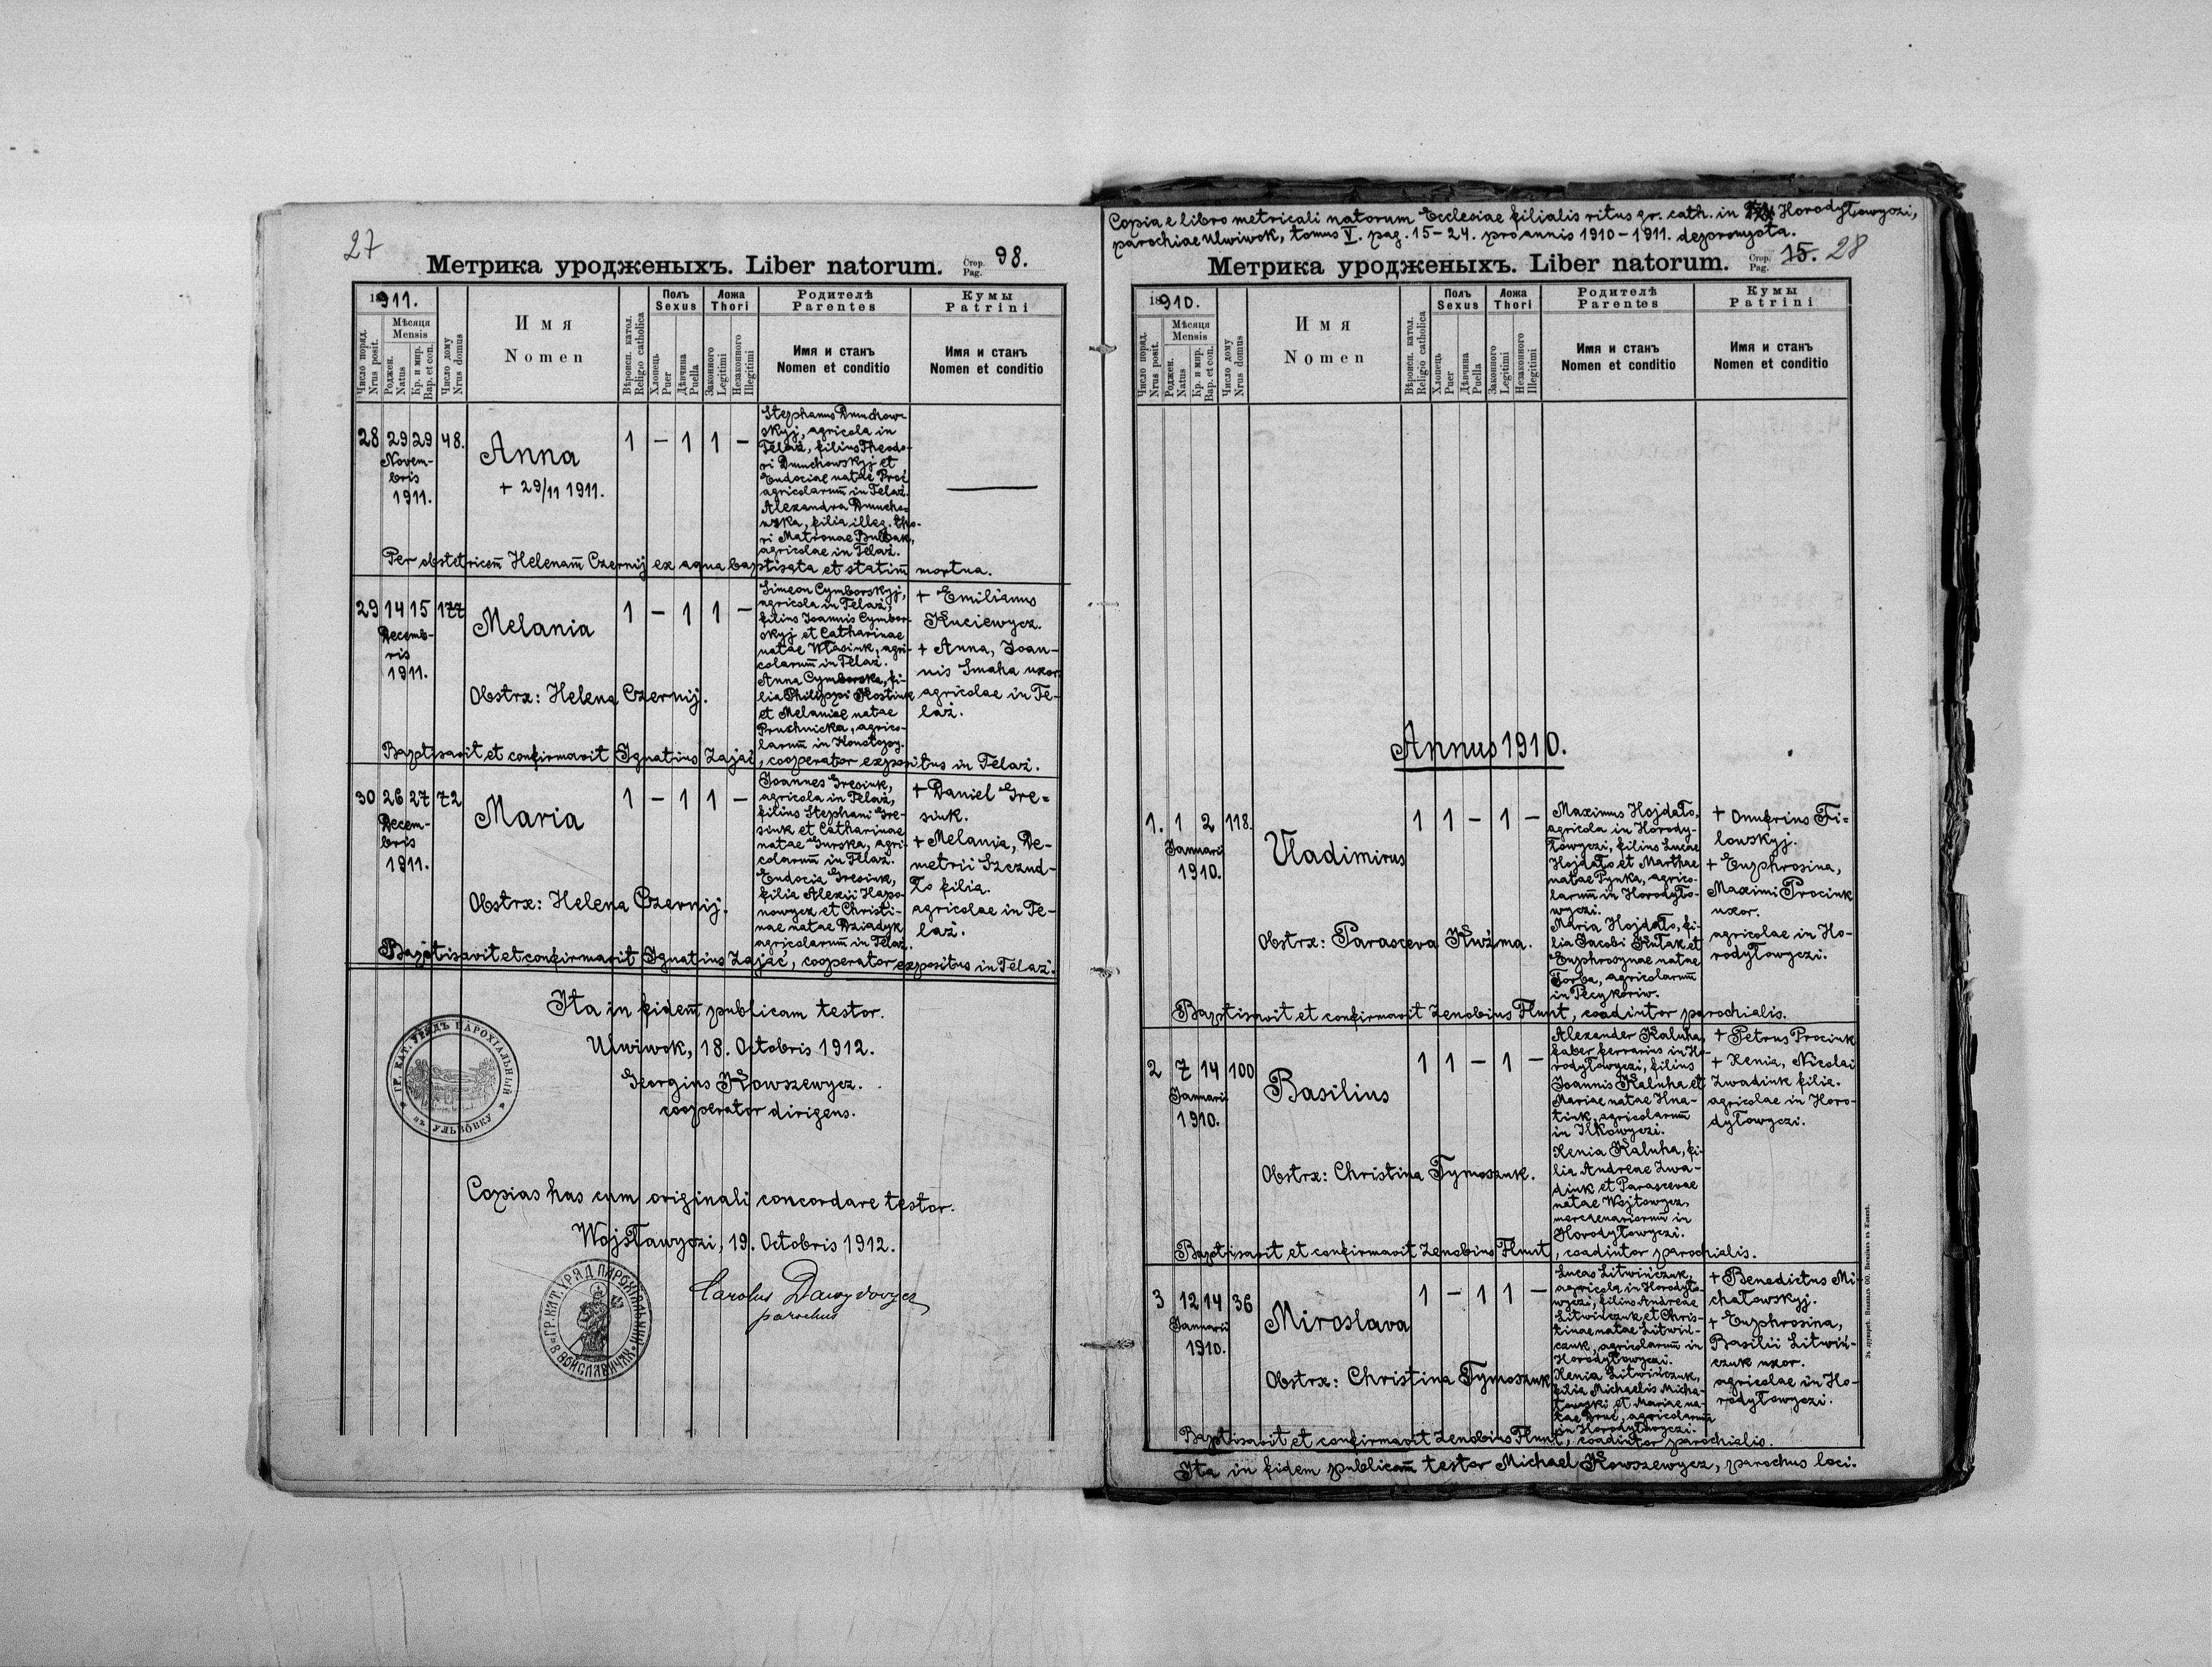 27
Метрика уродженыхъ. Liber natorum.
Стор. Pag. 98.
1911.
Число поряд. Nrus posit.
Мѣсяця Mensis
Роджен. Natus
Кр. и мир. Bap. et con.
Число дому Nrus domus
Имя
Nomen
Вѣроисп. катол. Religio catholica
Полъ Sexus
Хлопець Puer
Дѣвчина Puella
Ложа Thori
Законного Legitimi
Незаконного Illegitimi
Родителѣ
Parentes
Имя и станъ
Nomen et conditio
Кумы
Patrini
Имя и станъ
Nomen et conditio
28 29 29 48.
Novem-
bris
1911.
Anna
+ 29/11 1911.
1 – 1 1 –
Stephanus Dmuchow-
skyj, agricola in
Telaż, filius Theodo-
ri Dmuchowskyj et
Eudociae natae Proć
agricolarum̃ in Telaż.
Alexandra Dmucho-
wska, filia illeg. tho-
ri Matronae Bulbak,
agricolae in Telaż.
Per obstetricem̃ Helenam̃ Czernij ex aqua baptisata et statim̃ mortua.
29 14 15 177
Decemb-
ris
1911.
Melania
Obstrx: Helena Czernij.
1 – 1 1 –
Simeon Cymborskyj,
agricola in Telaż,
filius Joannis Cymbor-
skyj et Catharinae
natae Własiuk, agri-
colarum̃ in Telaż.
Anna Cymborska, fi-
lia Philippi Kostiuk
et Melaniae natae
Pruchnicka, agrico-
larum̃ in Konotopy.
+ Emilianus
Kuciewycz.
+ Anna, Joan-
nis Smaha uxor.
agricolae in Te-
laż.
Baptisavit et confirmavit Ignatius Zajać, cooperator expositus in Telaż.
30 26 27 72
Decem-
bris
1911.
Maria
Obstrx: Helena Czernij.
1 – 1 1 –
Joannes Gresiuk,
agricola in Telaż,
filius Stephani Gre-
siuk et Catharinae
natae Gurska, agri-
colarum̃ in Telaż.
Eudocia Gresiuk,
filia Alexii Hapo-
nowycz et Christi-
nae natae Dziadyk
agricolarum̃ in Telaż.
+ Daniel Gre-
siuk.
+ Melania, De-
metrii Szczud-
ło filia.
agricolae in Te-
laż.
Baptisavit et confirmavit Ignatius Zajać, cooperator expositus in Telaż.
Ita in fidem̃ publicam testor.
Ulwiwok, 18. Octobris 1912.
Georgius Kowszewycz.
cooperator dirigens.
ГР. КАТ. УРЯДЪ ПАРОХІАЛЬНЫЙ
въ УЛЬВÔВКУ
Copias has cum originali concordare testor.
Wojsławyczi, 19. Octobris 1912.
Carolus Dawydovycz
parochus
ГР. КАТ. УРЯД ПАРОХІАЛЬНИЙ
В ВОЙСЛАВИЧАХ
Copia e libro metricali natorum Ecclesiae filialis ritus gr. cath. in Horodyłowyczi,
parochiae Ulwiwok, tomus V. pag. 15-24. pro annis 1910-1911. deprompta.
Метрика уродженыхъ. Liber natorum.
Стор. Pag. 15. 28
18910.
Число поряд. Nrus posit.
Мѣсяця Mensis
Роджен. Natus
Кр. и мир. Bap. et con.
Число дому Nrus domus
Имя
Nomen
Вѣроисп. катол. Religio catholica
Полъ Sexus
Хлопець Puer
Дѣвчина Puella
Ложа Thori
Законного Legitimi
Незаконного Illegitimi
Родителѣ
Parentes
Имя и станъ
Nomen et conditio
Кумы
Patrini
Имя и станъ
Nomen et conditio
Annus 1910.
1. 1 2 118.
Januarii
1910.
Vladimirus
Obstrx: Parasceva Kuźma.
1 1 – 1 –
Maximus Hojdało,
agricola in Horody-
łowyczi, filius Lucae
Hojdało et Marthae
natae Pynka, agrico-
larum̃ in Horodyło-
wyczi.
Maria Hojdało, fi-
lia Jacobi Kułak et
Euphrosynae natae
Torba, agricolarum̃
in Pecykoriw.
+ Onufrius Fi-
lowskyj.
+ Euphrosina,
Maximi Prociuk
uxor.
agricolae in Ho-
rodyłowyczi.
Baptisavit et confirmavit Zenobius Flunt, coadiutor parochialis.
2 7 14 100
Januarii
1910.
Basilius
Obstrx: Christina Tymoszuk.
1 1 – 1 –
Alexander Kaluha,
faber ferrarius in Ho-
rodyłowyczi, filius
Joannis Kaluha et
Mariae natae Hna-
tiuk, agricolarum̃
in Ilkowyczi.
Xenia Kaluha, fi-
lia Andreae Zwa-
diuk et Parascevae
natae Wojtowycz,
mercenariorum̃ in
Horodyłowyczi.
+ Petrus Prociuk
+ Xenia, Nicolai
Zwadiuk filia.
agricolae in Horo-
dyłowyczi.
Baptisavit et confirmavit Zenobius Flunt, coadiutor parochialis.
3 12 14 36
Januarii
1910.
Miroslava
Obstrx: Christina Tymoszuk
1 – 1 1 –
Lucas Litwińczuk,
agricola in Horodyło-
wyczi, filius Andreae
Litwińczuk et Chris-
tinae natae Litwiń-
czuk, agricolarum in
Horodyłowyczi.
Xenia Litwińczuk,
filia Michaelis Micha-
łowski et Mariae na-
tae Druć, agricolarum̃
in Horodyłowyczi.
+ Benedictus Mi-
chałowskyj.
+ Euphrosina,
Basilii Litwiń-
czuk uxor.
agricolae in Ho-
rodyłowyczi.
Baptisavit et confirmavit Zenobius Flunt, coadiutor parochialis.
Ita in fidem publicam̃ testor Michael Kowszewycz, parochus loci.